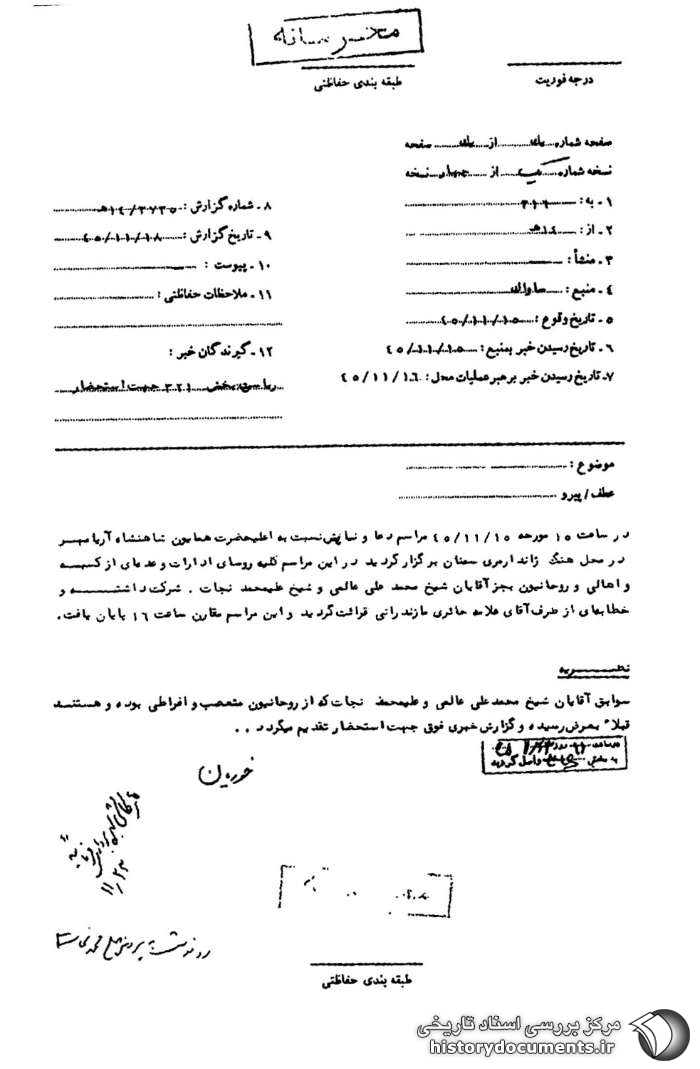 محرمانه
درجه فوریت
طبقه بندی حفاظتی
صفحه شماره یک از یک صفحه
نسخه شماره یک از چهار نسخه
۱ - به : ۳۱۶
۲ - از : ۱۴ هـ
۳ - منشأ :
۴ - منبع : ساواک
۵ - تاریخ وقوع : ۴۵/۱۱/۱۵
۶ - تاریخ رسیدن خبر بمنبع : ۴۵/۱۱/۱۵
۷ - تاریخ رسیدن خبر برهبر عملیات محل : ۴۵/۱۱/۱۶
۸ - شماره گزارش : ۱۴/۳۷۳۵ هـ
۹ - تاریخ گزارش : ۴۵/۱۱/۱۸
۱۰ - پیوست :
۱۱ - ملاحظات حفاظتی :
۱۲ - گیرندگان خبر :
ریاست بخش ۳۲۱ جهت استحضار
موضوع :
عطف/پیرو
در ساعت ۱۵ مورخه ۴۵/۱۱/۱۵ مراسم دعا و نیایش نسبت به اعلیحضرت همایون شاهنشاه آریامهر
در محل هنگ ژاندارمری سمنان برگزار گردید در این مراسم کلیه روسای ادارات و عده‌ای از کسبه
و اهالی و روحانیون بجز آقایان شیخ محمد علی عالمی و شیخ علیمحمد نجات . شرکت داشتند و
خطابه‌ای از طرف آقای علامه حائری مازندرانی قرائت گردید و این مراسم مقارن ساعت ۱۶ پایان یافت.
نظریه
سوابق آقایان شیخ محمد علی عالمی و علیمحمد نجات که از روحانیون متعصب و افراطی بوده و هستند
قبلاً بعرض رسیده و گزارش خبری فوق جهت استحضار تقدیم میگردد . .
به بخش واصل گردید
۱۱/۲۳
طبقه بندی حفاظتی
مرکز بررسی اسناد تاریخی
historydocuments.ir